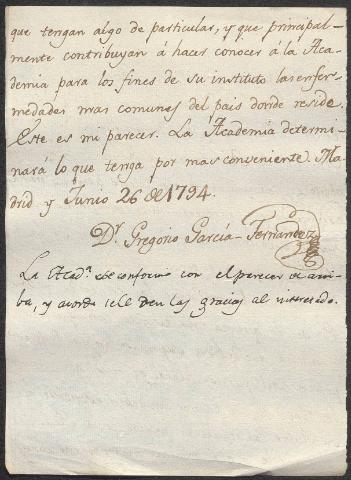 que tengan algo de particular, y que principal-
mente contribuyan á hacer conocer á la Aca-
demia para los fines de su instituto las enfer-
medades mas comunes del pais donde reside.
Este es mi parecer. La Academia determi-
nará lo que tenga por mas conveniente. Ma-
drid y Junio 26 de 1794.
Dr. Gregorio García-Fernandez
La Acad.ª se conformo con el parecer de arri-
ba, y acordo se le den las gracias al interesado.